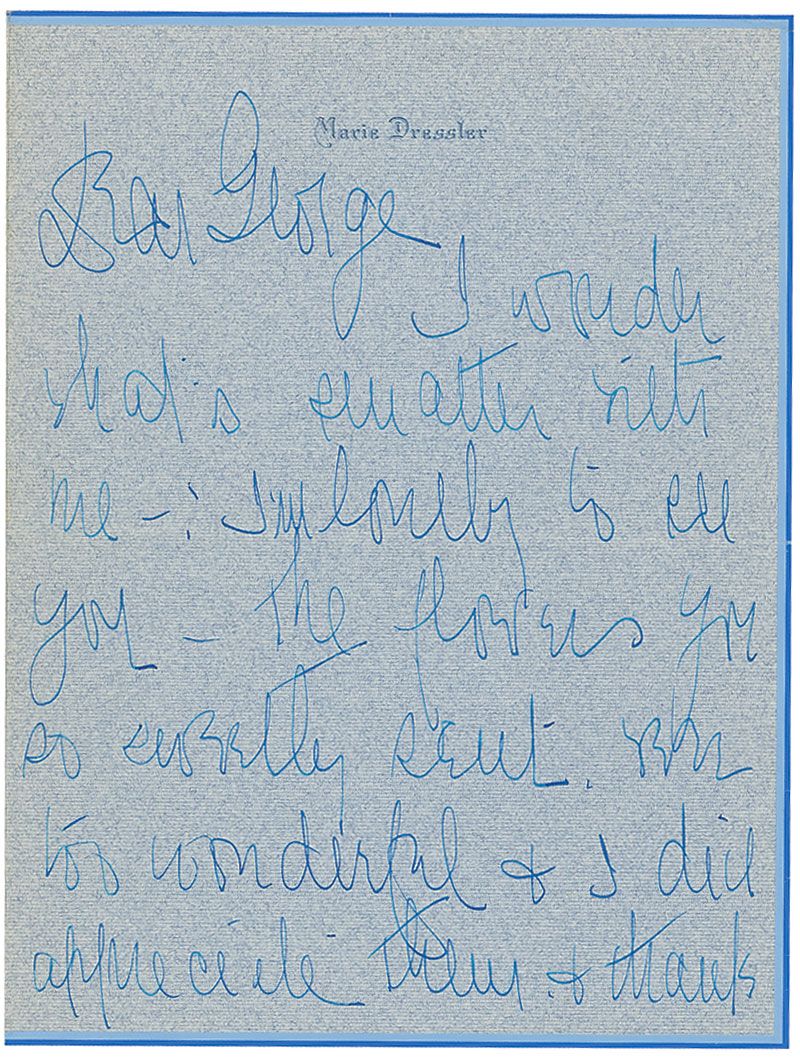 Marie Dressler
Dear George
I wonder
what's smatter with
me - : I'm lonely to see
you - The flowers you
so sweetly sent. were
too wonderful & I did
appreciate them. & thank